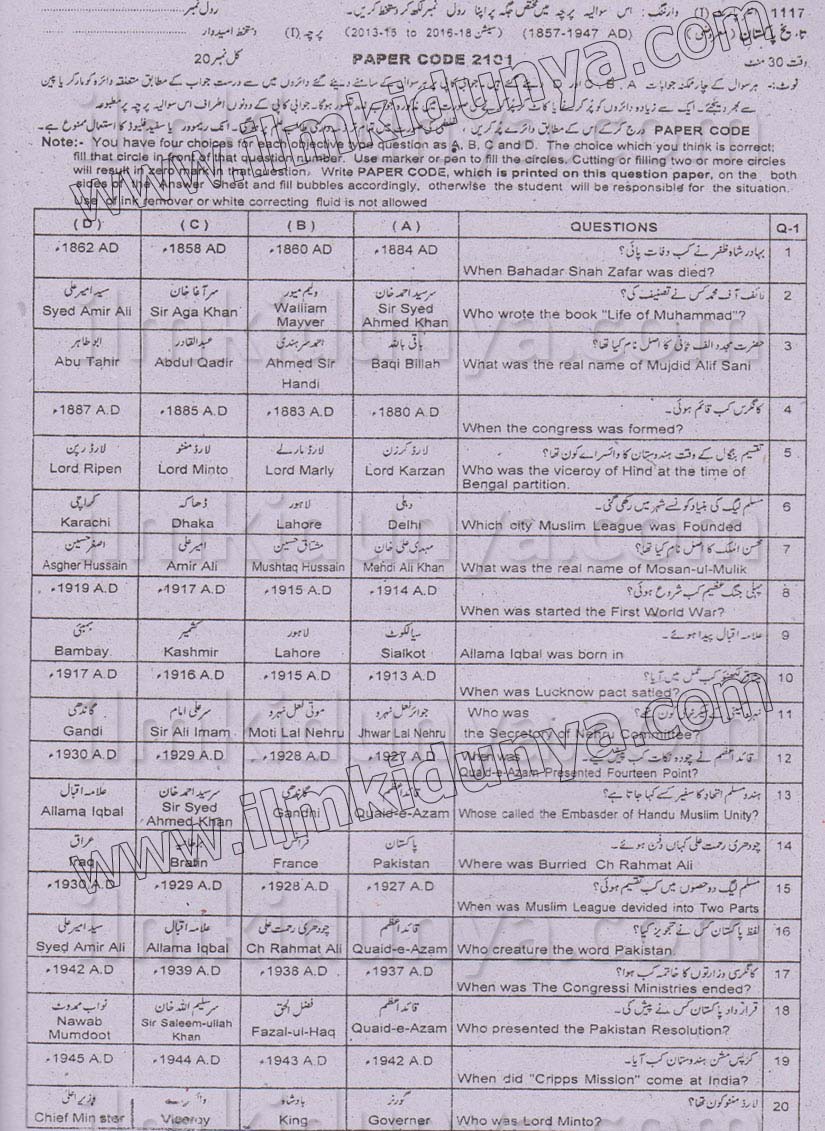 1117 وارننگ: اس سوالیہ پرچہ میں مختص جگہ پر اپنا رول نمبر لکھ کر دستخط کریں۔ رول نمبر
تاریخ پاکستان (1857-1947 AD) (2013-15 to 2016-18 سیشن) پرچہ (I) دستخط امیدوار
وقت 30 منٹ PAPER CODE 2101 کل نمبر 20
نوٹ:۔ ہر سوال کے چار ممکنہ جوابات A، B، C اور D دیئے گئے ہیں۔ جوابی کاپی پر ہر سوال کے سامنے دیئے گئے دائروں میں سے درست جواب کے مطابق متعلقہ دائرہ کو مارکر یا پین
سے بھر دیجئے۔ ایک سے زیادہ دائروں کو پُر کرنے یا کاٹ کر پُر کرنے کی صورت میں مذکورہ جواب غلط تصور ہوگا۔ جوابی کاپی کے دونوں اطراف اس سوالیہ پرچہ پر مطبوعہ
PAPER CODE درج کرکے اس کے مطابق دائرے پُر کریں، انک ریموور یا سفید فلیوڈ کا استعمال ممنوع ہے۔
Note:- You have four choices for each objective type question as A, B, C and D. The choice which you think is correct;
fill that circle in front of that question number. Use marker or pen to fill the circles. Cutting or filling two or more circles
will result in zero mark in that question. Write PAPER CODE, which is printed on this question paper, on the both
sides of the Answer Sheet and fill bubbles accordingly, otherwise the student will be responsible for the situation.
Use of ink remover or white correcting fluid is not allowed
(D) (C) (B) (A) QUESTIONS Q-1
1862 AD۔ 1858 AD۔ 1860 AD۔ 1884 AD۔ بہادر شاہ ظفر نے کب وفات پائی؟ 1
When Bahadar Shah Zafar was died?
سید امیر علی سر آغا خان ولیم میور سر سید احمد خان لائف آف محمد کس نے تصنیف کی؟ 2
Syed Amir Ali Sir Aga Khan Walliam Mayver Sir Syed Ahmed Khan Who wrote the book "Life of Muhammad"?
ابو طاہر عبدالقادر احمد سر ہندی باقی باللہ حضرت مجدد الف ثانی کا اصل نام کیا تھا؟ 3
Abu Tahir Abdul Qadir Ahmed Sir Handi Baqi Billah What was the real name of Mujdid Alif Sani
1887 A.D۔ 1885 A.D۔ 1883 A.D۔ 1880 A.D۔ کانگرس کب قائم ہوئی۔ 4
When the congress was formed?
لارڈ رپن لارڈ منٹو لارڈ مارلے لارڈ کرزن تقسیم بنگال کے وقت ہندوستان کا وائسرائے کون تھا؟ 5
Lord Ripen Lord Minto Lord Marly Lord Karzan Who was the viceroy of Hind at the time of
Bengal partition.
کراچی ڈھاکہ لاہور دہلی مسلم لیگ کی بنیاد کونسے شہر میں رکھی گئی۔ 6
Karachi Dhaka Lahore Delhi Which city Muslim League was Founded
اصغر حسین امیر علی مشتاق حسین مہدی علی خان محسن الملک کا اصل نام کیا تھا؟ 7
Asgher Hussain Amir Ali Mushtaq Hussain Mehdi Ali Khan What was the real name of Mosan-ul-Mulik
1919 A.D۔ 1917 A.D۔ 1915 A.D۔ 1914 A.D۔ پہلی جنگ عظیم کب شروع ہوئی؟ 8
When was started the First World War?
بمبئی کشمیر لاہور سیالکوٹ علامہ اقبال پیدا ہوئے۔ 9
Bambay Kashmir Lahore Sialkot Allama Iqbal was born in
1917 A.D۔ 1916 A.D۔ 1915 A.D۔ 1913 A.D۔ میثاق لکھنؤ کب عمل میں آیا؟ 10
When was Lucknow pact satied?
گاندھی سر علی امام موتی لعل نہرو جواہر لعل نہرو Who was 11
Gandi Sir Ali Imam Moti Lal Nehru Jhwar Lal Nehru the Secretary of Nehru Committee?
1930 A.D۔ 1929 A.D۔ 1928 A.D۔ 1927 A.D۔ قائد اعظم نے چودہ نکات کب پیش کیے۔ When was 12
Quaid-e-Azam Presented Fourteen Point?
علامہ اقبال سر سید احمد خان گاندھی قائد اعظم ہندو مسلم اتحاد کا سفیر کسے کہا جاتا ہے؟ 13
Allama Iqbal Sir Syed Ahmed Khan Gandhi Quaid-e-Azam Whose called the Embasder of Handu Muslim Unity?
عراق برطانیہ فرانس پاکستان چودھری رحمت علی کہاں دفن ہوئے۔ 14
Iraq Bratin France Pakistan Where was Burried Ch Rahmat Ali
1930 A.D۔ 1929 A.D۔ 1928 A.D۔ 1927 A.D۔ مسلم لیگ دو حصوں میں کب تقسیم ہوئی؟ 15
When was Muslim League devided into Two Parts
سید امیر علی علامہ اقبال چودھری رحمت علی قائد اعظم لفظ پاکستان کس نے تجویز کیا؟ 16
Syed Amir Ali Allama Iqbal Ch Rahmat Ali Quaid-e-Azam Who creature the word Pakistan.
1942 A.D۔ 1939 A.D۔ 1938 A.D۔ 1937 A.D۔ کانگرسی وزارتوں کا خاتمہ کب ہوا؟ 17
When was The Congressi Ministries ended?
نواب ممدوٹ سر سلیم اللہ خان فضل الحق قائد اعظم قرارداد پاکستان کس نے پیش کی۔ 18
Nawab Mumdoot Sir Saleem-ullah Khan Fazal-ul-Haq Quaid-e-Azam Who presented the Pakistan Resolution?
1945 A.D۔ 1944 A.D۔ 1943 A.D۔ 1942 A.D۔ کرپس مشن ہندوستان کب آیا۔ 19
When did "Cripps Mission" come at India?
وزیر اعلیٰ وائسرائے بادشاہ گورنر لارڈ منٹو کون تھا؟ 20
Chief Minister Viceroy King Governer Who was Lord Minto?
www.ilmkidunya.com
www.ilmkidunya.com